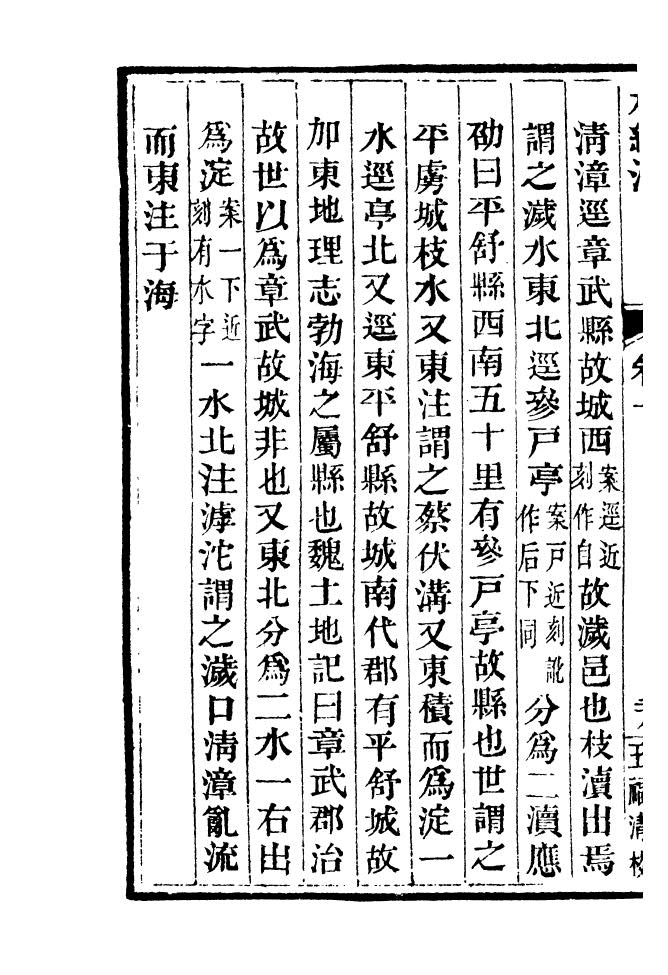 淸漳逕章武縣故城西案逕近刻作自故濊邑也枝瀆出焉
謂之濊水東北逕參戸亭案戸近刻訛作后下同分爲二瀆應
劭曰平舒縣西南五十里有參戸亭故縣也世謂之
平虜城枝水又東注謂之蔡伏溝又東積而爲淀一
水逕亭北又逕東平舒縣故城南代郡有平舒城故
加東地理志勃海之屬縣也魏土地記曰章武郡治
故世以爲章武故城非也又東北分爲二水一右出
爲淀案一下近刻有水字一水北注滹沱謂之濊口淸漳亂流
而東注于海